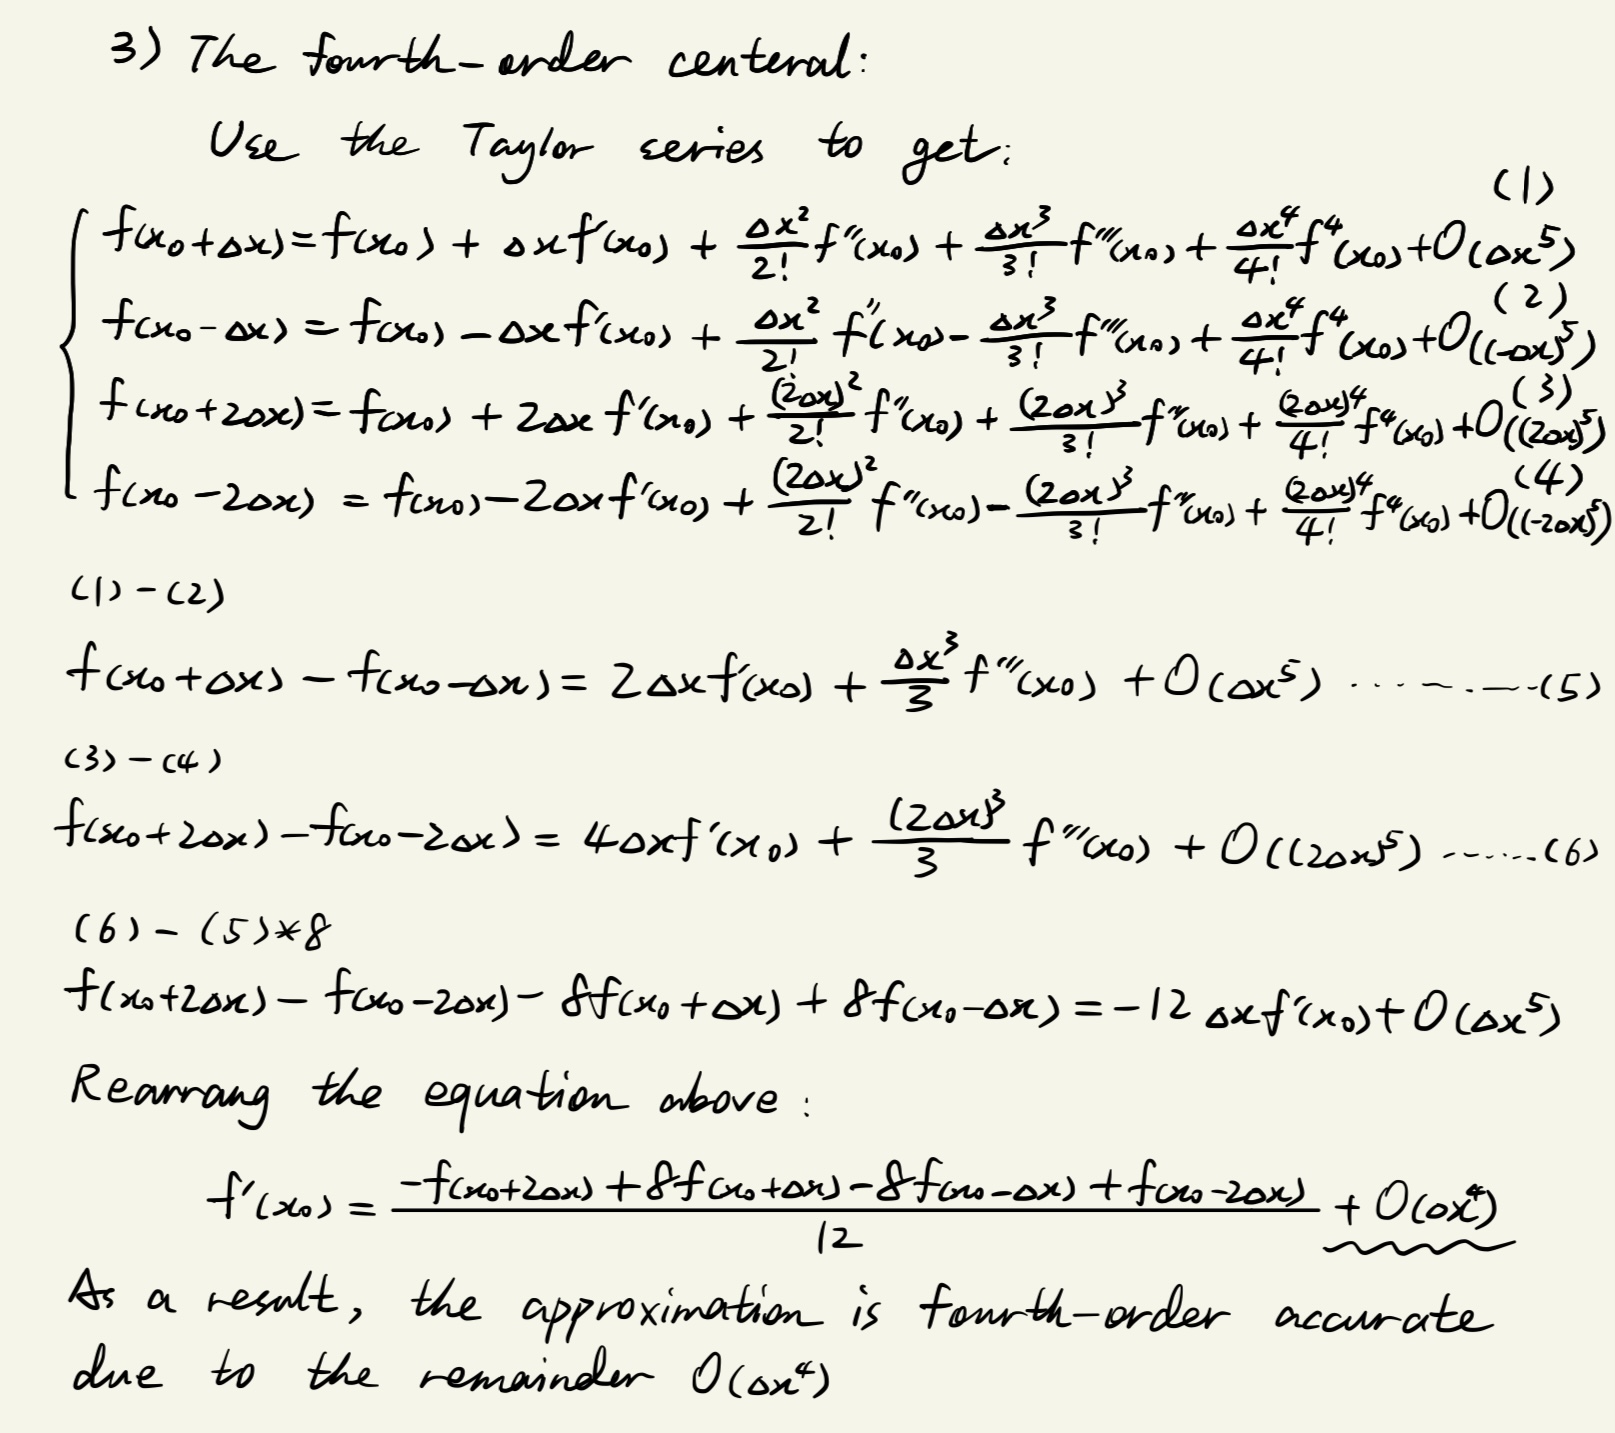 3) The fourth-order centeral:
Use the Taylor series to get:
f(x₀+Δx)=f(x₀) + Δxf'(x₀) + Δx²/2! f''(x₀) + Δx³/3! f'''(x₀) + Δx⁴/4! f⁴(x₀)+O(Δx⁵) (1)
f(x₀-Δx) = f(x₀) - Δxf'(x₀) + Δx²/2! f''(x₀) - Δx³/3! f'''(x₀) + Δx⁴/4! f⁴(x₀)+O((-Δx)⁵) (2)
f(x₀+2Δx)= f(x₀) + 2Δx f'(x₀) + (2Δx)²/2! f''(x₀) + (2Δx)³/3! f'''(x₀) + (2Δx)⁴/4! f⁴(x₀)+O((2Δx)⁵) (3)
f(x₀-2Δx) = f(x₀)-2Δxf'(x₀) + (2Δx)²/2! f''(x₀) - (2Δx)³/3! f'''(x₀) + (2Δx)⁴/4! f⁴(x₀)+O((-2Δx)⁵) (4)
(1)-(2)
f(x₀+Δx) - f(x₀-Δx) = 2Δxf'(x₀) + Δx³/3 f'''(x₀) + O(Δx⁵) ..........(5)
(3)-(4)
f(x₀+2Δx) - f(x₀-2Δx) = 4Δxf'(x₀) + (2Δx)³/3 f'''(x₀) + O((2Δx)⁵) ........(6)
(6) - (5)*8
f(x₀+2Δx) - f(x₀-2Δx) - 8f(x₀+Δx) + 8f(x₀-Δx) = -12Δxf'(x₀)+O(Δx⁵)
Rearrang the equation above:
f'(x₀) = -f(x₀+2Δx) + 8f(x₀+Δx) - 8f(x₀-Δx) + f(x₀-2Δx)/12 + O(Δx⁴)
As a result, the approximation is fourth-order accurate
due to the remainder O(Δx⁴)